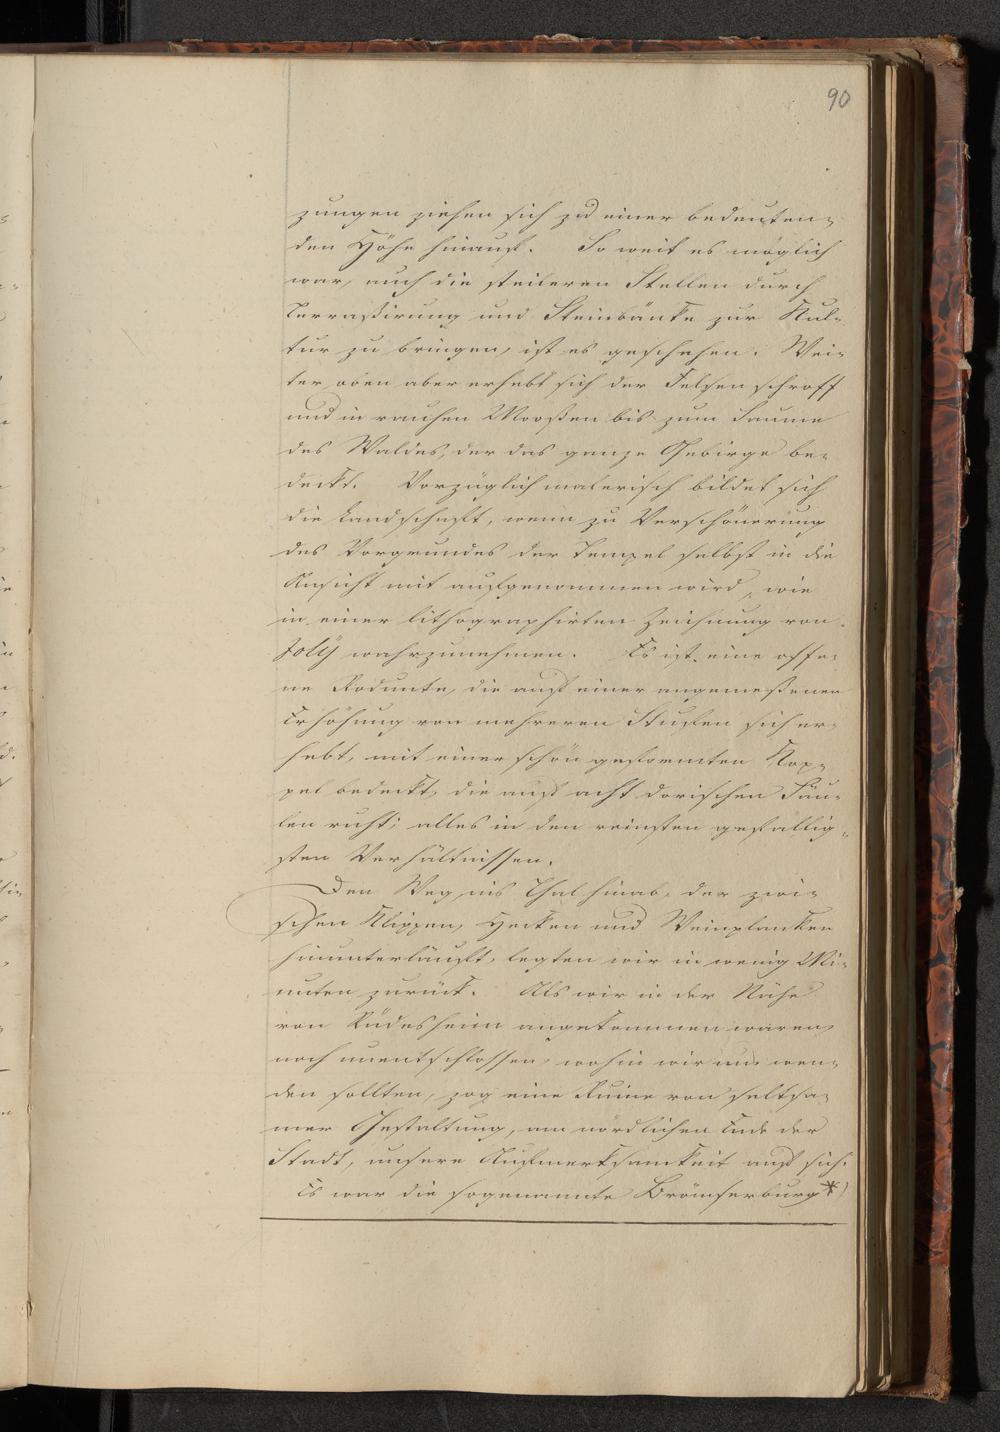 90
zungen ziehen sich zu einer bedeuten-
den Höhe hinauf. So weit es möglich
war, auch die steileren Stellen durch
Terraßirung und Steinbänke zur Kul-
tur zu bringen, ist es geschehen. Wei-
ter oben aber erhebt sich der Felsen schroff
und in rauhen Maßen bis zum Saume
des Waldes, der das ganze Gebirge be-
deckt. Vorzüglich malerisch bildet sich
die Landschaft, wenn zu Verschönerung
des Vorgrundes der Tempel selbst in die
Ansicht mit aufgenommen wird, wie
in einer lithographirten Zeichnung von
Joly wahrzunehmen. Es ist eine offe-
ne Rodunte, die auf einer angemeßenen
Erhöhung von mehreren Stufen sich er-
hebt, mit einer schön geformten Kop-
pel bedeckt, die auf acht dorischen Säu-
len ruht; alles in den reinsten gefällig-
sten Verhältnissen.
Den Weg ins Thal hinab, der zwi-
schen Klippen, Hecken und Weinplanken
hinunterläuft, legten wir in wenig Mi-
nuten zurück. Als wir in der Nähe
von Rüdesheim angekommen waren,
noch unentschlossen, wohin wir uns wen-
den sollten, zog eine Ruine von seltsa-
mer Gestaltung, am nördlichen Ende der
Stadt, unsere Aufmerksamkeit auf sich.
Es war die sogenannte Brömserburg *)